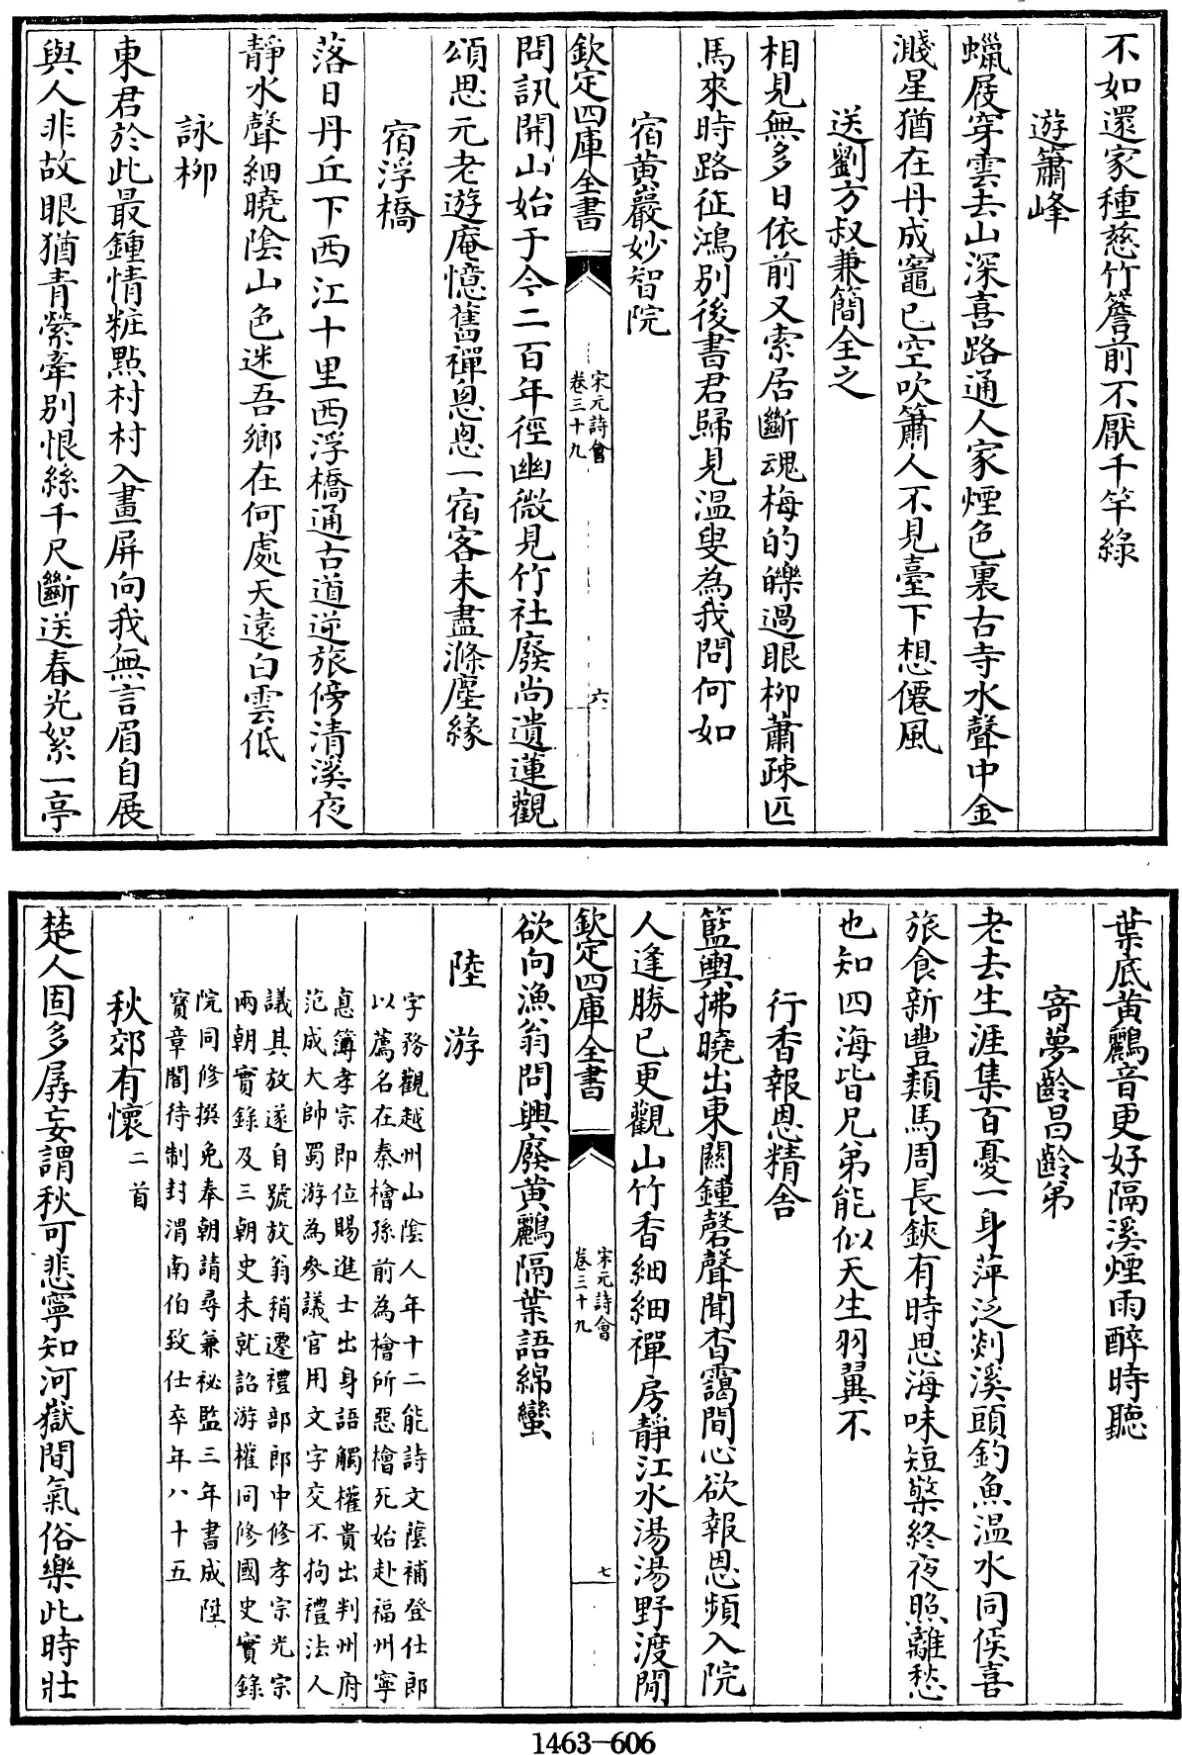 不如還家種慈竹簷前不厭千竿綠
遊簫峰
蠟屐穿雲去山深喜路通人家煙色裏古寺水聲中金
濺星猶在丹成竈已空吹簫人不見臺下想僊風
送劉方叔兼簡全之
相見無多日依前又索居斷魂梅的皪過眼柳蕭疎匹
馬來時路征鴻別後書君歸見温叟為我問何如
宿黃巖妙智院
欽定四庫全書
宋元詩會
卷三十九
六
問訊開山始于今二百年徑幽微見竹社廢尚遺蓮觀
頌思元老遊庵憶舊禪悤悤一宿客未盡滌塵緣
宿浮橋
落日丹丘下西江十里西浮橋通古道逆旅傍清溪夜
靜水聲細曉陰山色迷吾鄉在何處天遠白雲低
詠柳
東君於此最鍾情粧點村村入畫屏向我無言眉自展
與人非故眼猶青縈牽別恨絲千尺斷送春光絮一亭
葉底黃鸝音更好隔溪煙雨醉時聽
寄夢齡昌齡弟
老去生涯集百憂一身萍泛剡溪頭釣魚温水同侯喜
旅食新豐類馬周長鋏有時思海味短檠終夜照離愁
也知四海皆兄弟能似天生羽翼不
行香報恩精舍
籃輿拂曉出東關鐘磬聲聞杳靄間心欲報恩頻入院
人逢勝已更觀山竹香細細禪房靜江水湯湯野渡閒
欽定四庫全書
宋元詩會
卷三十九
七
欲向漁翁問興廢黃鸝隔葉語綿蠻
陸游
字務觀越州山陰人年十二能詩文蔭補登仕郎
以薦名在秦檜孫前為檜所惡檜死始赴福州寧
悳簿孝宗即位賜進士出身語觸權貴出判州府
范成大帥蜀游為參議官用文字交不拘禮法人
議其放遂自號放翁稍遷禮部郎中修孝宗光宗
兩朝實錄及三朝史未就詔游權同修國史實錄
院同修撰免奉朝請尋兼祕監三年書成陞
寶章閣待制封渭南伯致仕卒年八十五
秋郊有懷二首
楚人固多孱妄謂秋可悲寧知河嶽間氣俗樂此時壯
1463-606